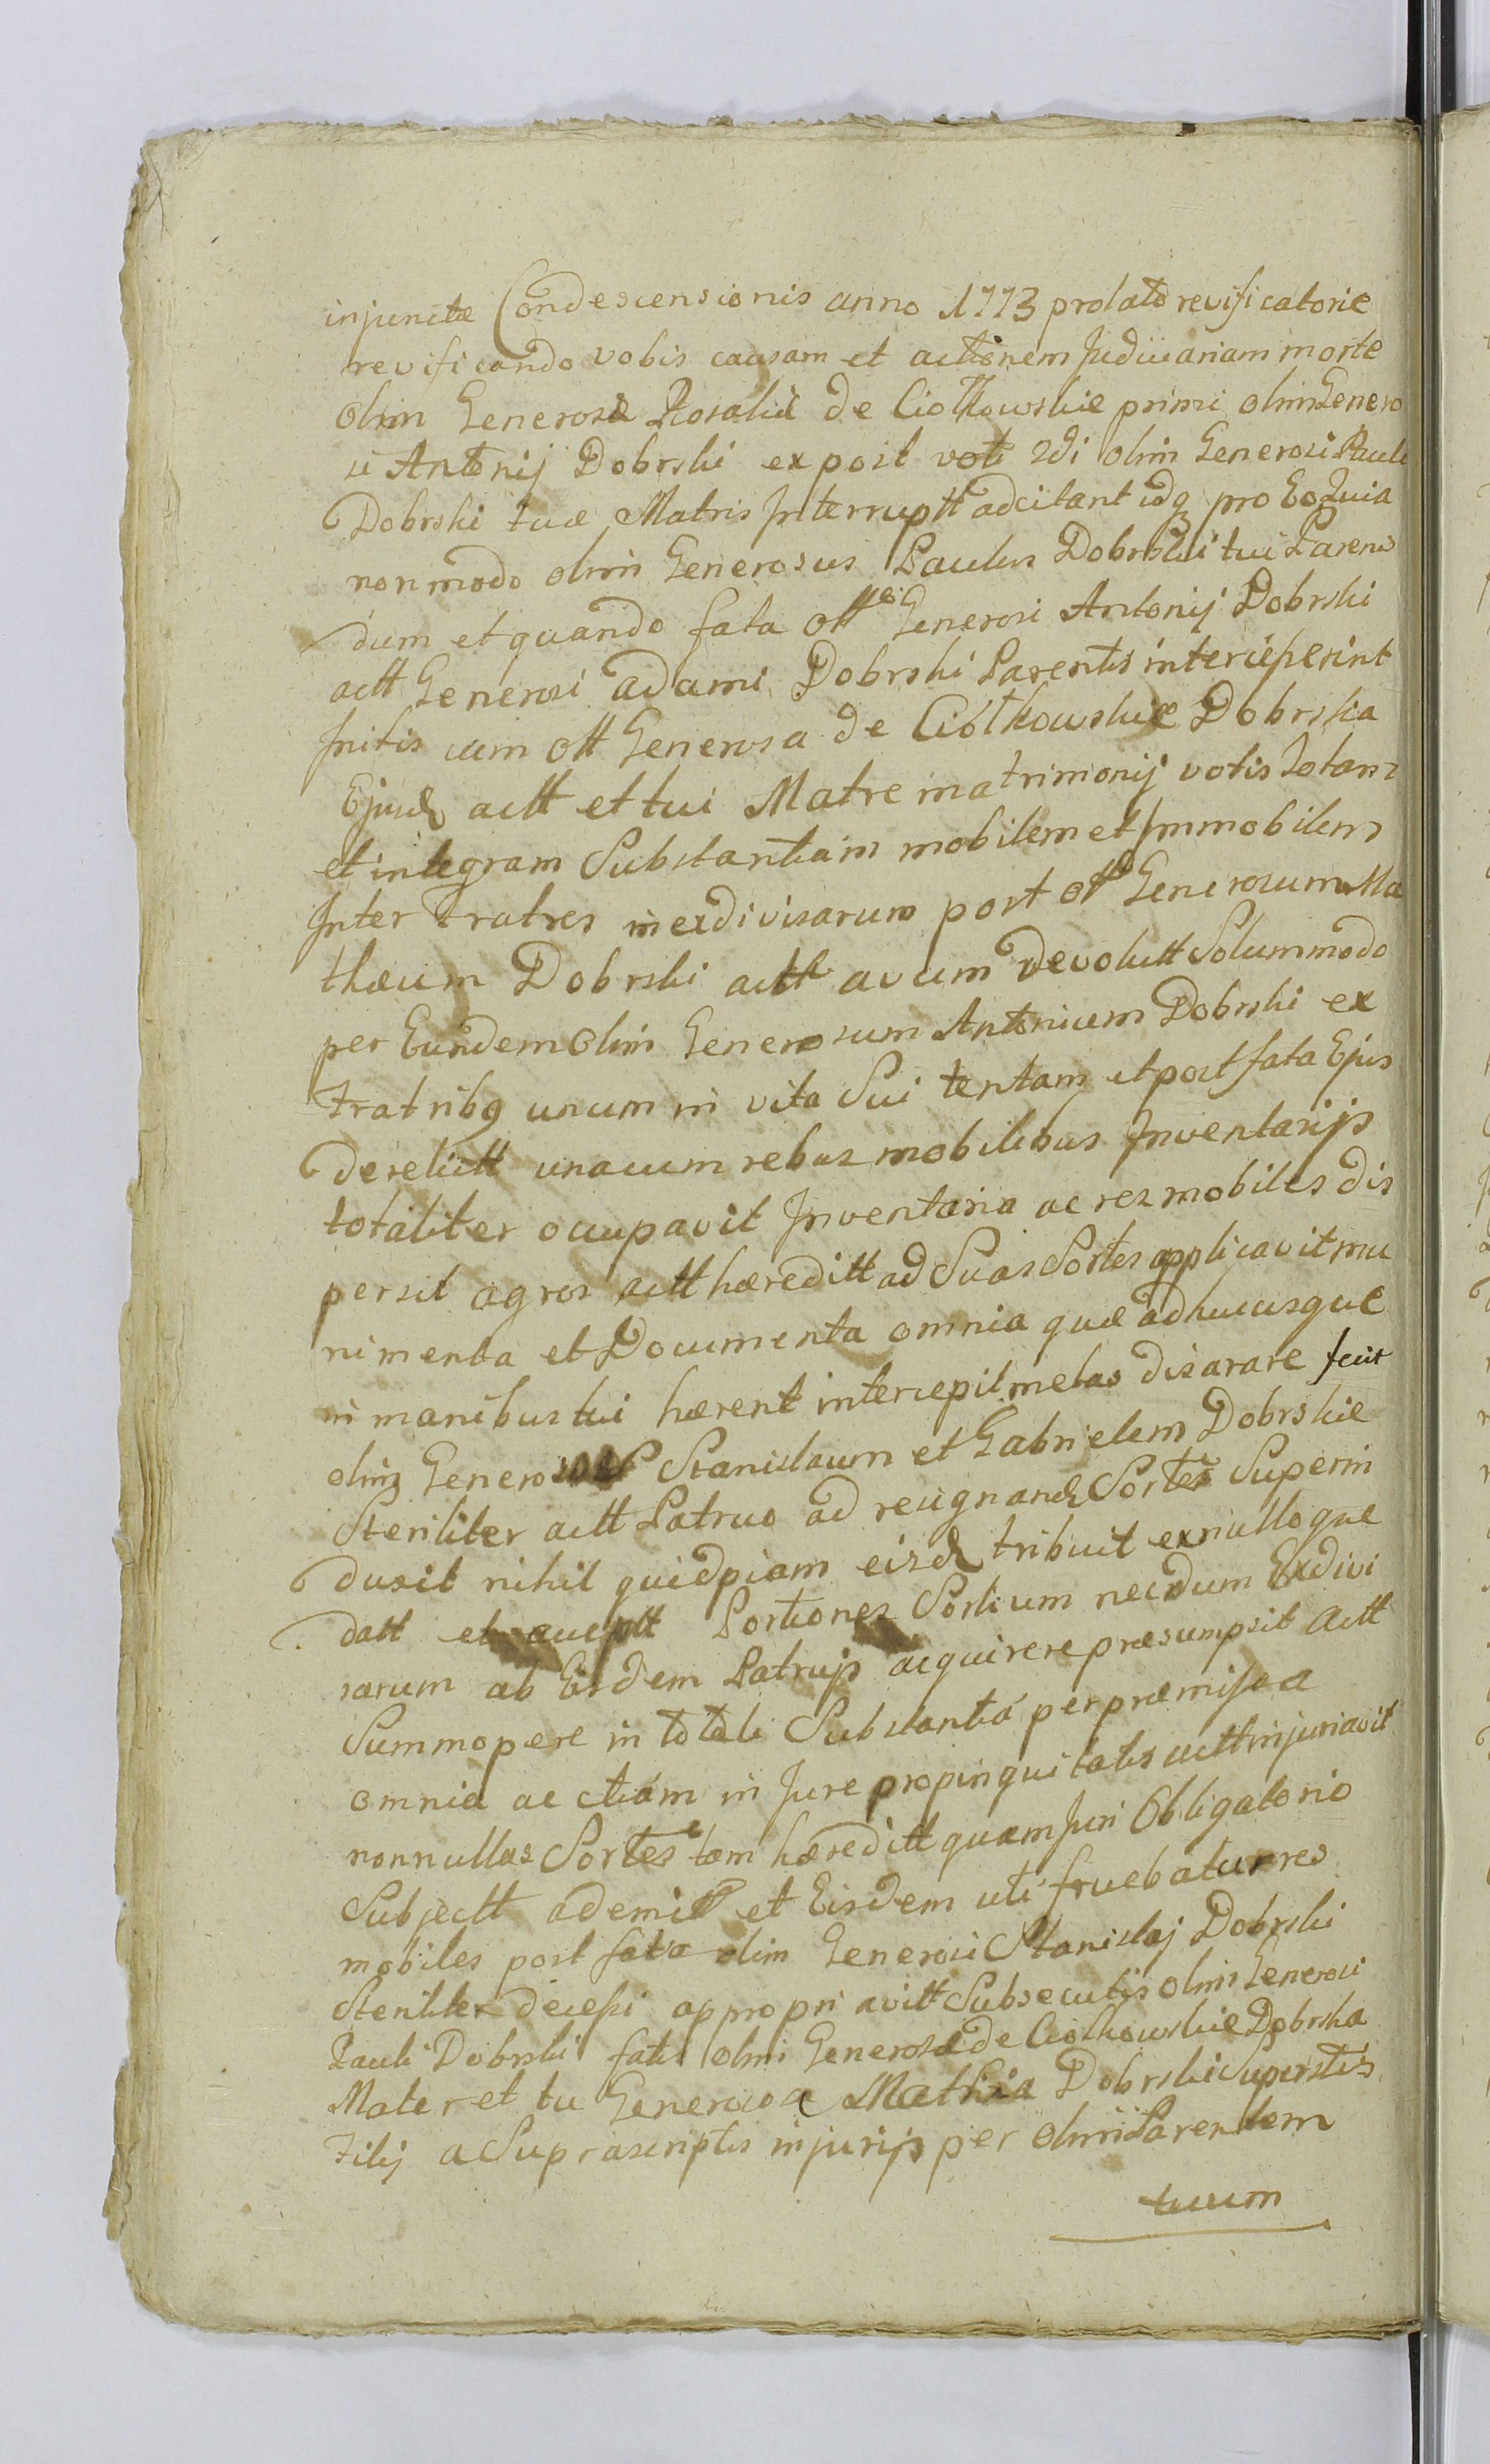 injunctæ Condescensionis anno 1773 prolato revificatorie
revificando vobis causam et actionem Judiciariam morte
olim Generosæ Rosaliæ de Ciołkowskie primi olim Genero
si Antonij Dobrski expost voti 2di olim Generosi Pauli
Dobrski tuæ Matris Interruptt adcitant idq pro Eo Quia
non modo olim Generosus Paulus Dobrski tui Parens
dum et quando fata ott Generosi Antonij Dobrski
actt Generosi adami Dobrski Parentis interceperint
Initis cum ott Generosa de Ciołkowskie Dobrska
Ejusd actt et tui Matre matrimonij votis Totam
et integram Substantiam mobilem et Immobilem
Inter Fratres inexdivisarum post ott Generosum Ma
thæum Dobrski actt avum devolutt Solummodo
per Eundem olim Generosum Antonium Dobrski ex
Fratribq unum in vita Sui tentam et post fata Ejus
derelictt unacum rebus mobilibus Inventarijs
totaliter occupavit Inventaria ac res mobiles dis
persit agros actt hæreditt ad Suas Sortes applicavit mu
nimenta et Documenta omnia quæ adhucusque
in manibus tui hærent intercepit metas disarare fecit
olim Generosos Stanislaum et Gabrielem Dobrskie
Steriliter actt Patruo ad resignand Sortes Superin
duxit nihil quidpiam eisd tribuit ex nulloque
datt et acceptt Portiones Sortium necdum Exdivi
sarum ab Eisdem Patrujs acquirere præsumpsit actt
Summopere in totali Substantia per præmissa
omnia ac etiam in Jure propinquitatis actt injuriavit
nonnullas Sortes tam hæreditt quam Juri Obligatorio
Subjectt ademit et Eisdem uti fruebatur res
mobiles post fata olim Generosi Stanislaj Dobrski
Steriliter decessi appropriavitt Subsecutis olim Generosi
Pauli Dobrski fatis olim Generosæ de Ciołkowskie Dobrska
Mater et tu Generose Mathia Dobrski Superstis
Filij a Suprascriptis injurijs per olim Parentem
tuum